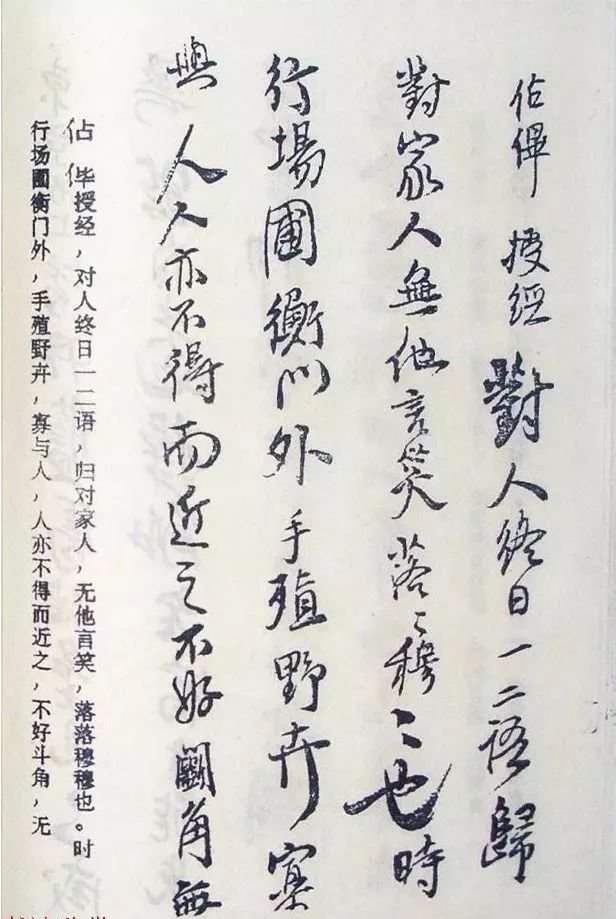 佔俾 授經 對人終日一二語歸
對家人無他言笑落〻穆〻也時
行場圃衡門外手殖野卉寡
與人人亦不得而近之不好鬬角無
佔佯授经，对人终日一二语，归对家人，无他言笑，落落穆穆也。时
行场圃衡门外，手殖野卉，寡与人，人亦不得而近之，不好斗角，无